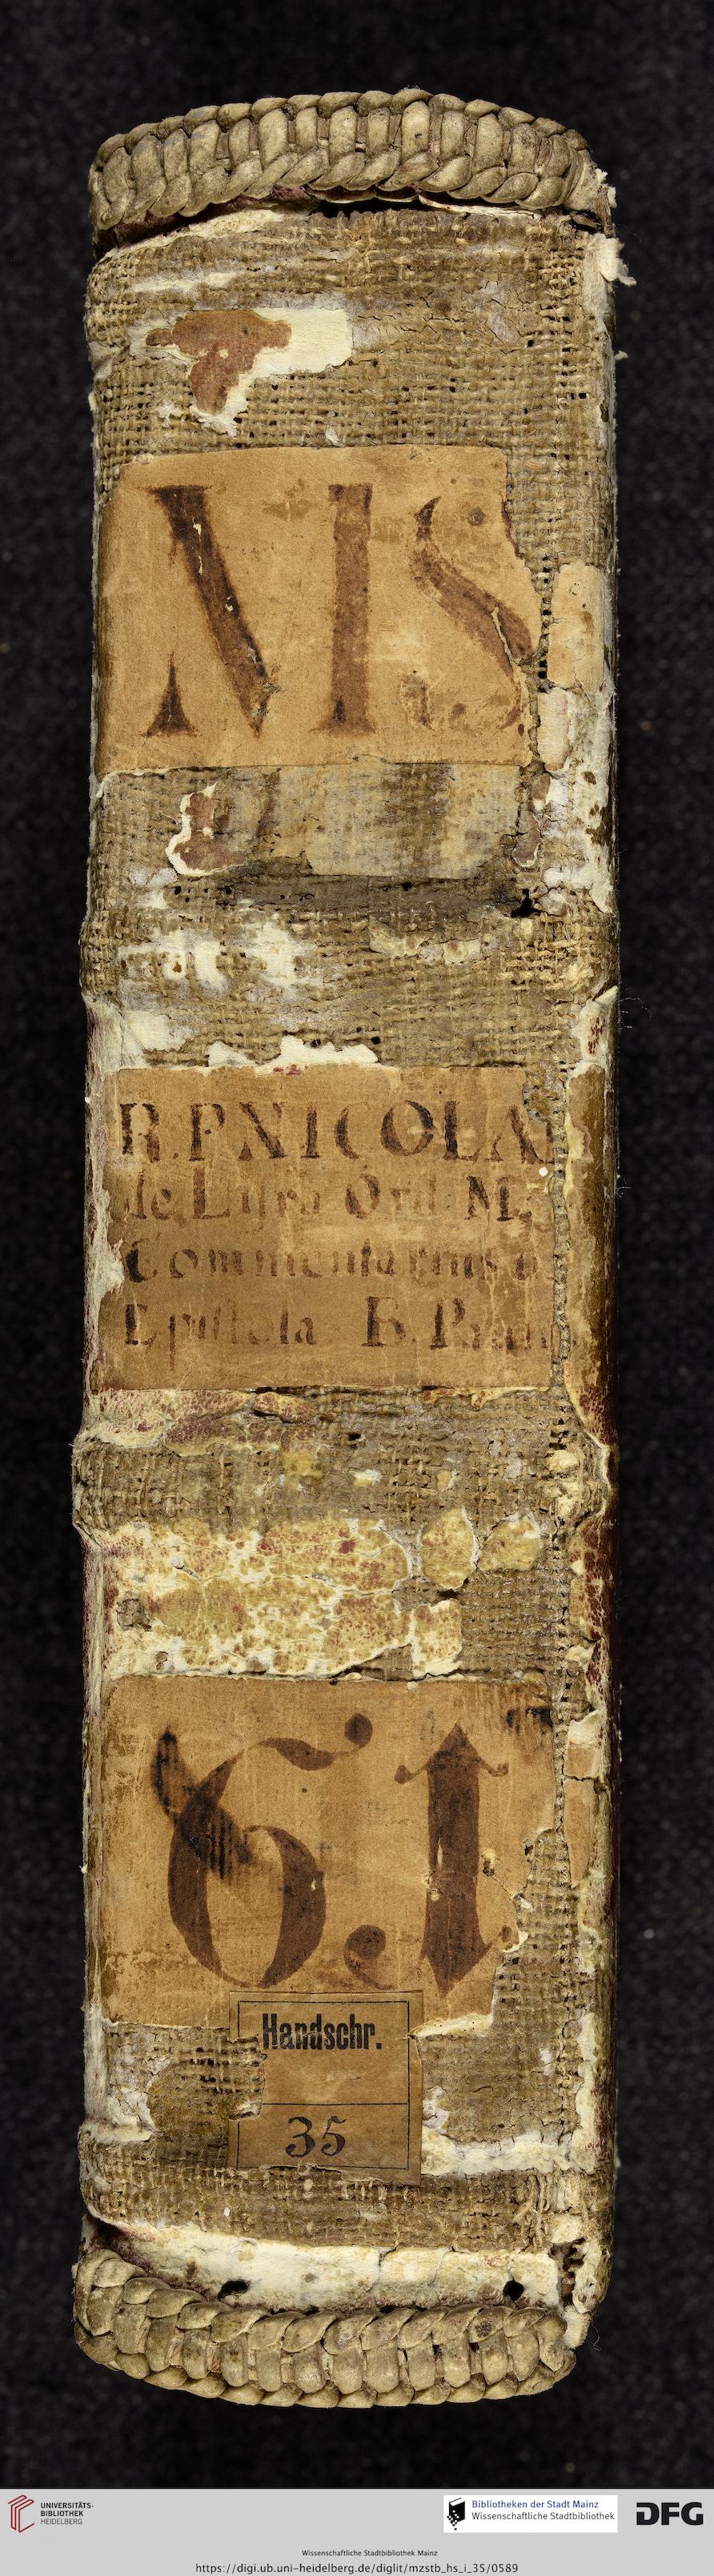 MS
B. P. NICOLA
de Lyra Ord. M.
Commentarius
Epistola B. Pauli
61
Handschr.
35
UNIVERSITÄTS-
BIBLIOTHEK
HEIDELBERG
Bibliotheken der Stadt Mainz
Wissenschaftliche Stadtbibliothek
DFG
Wissenschaftliche Stadtbibliothek Mainz
https://digi.ub.uni-heidelberg.de/diglit/mzstb_hs_i_35/0589